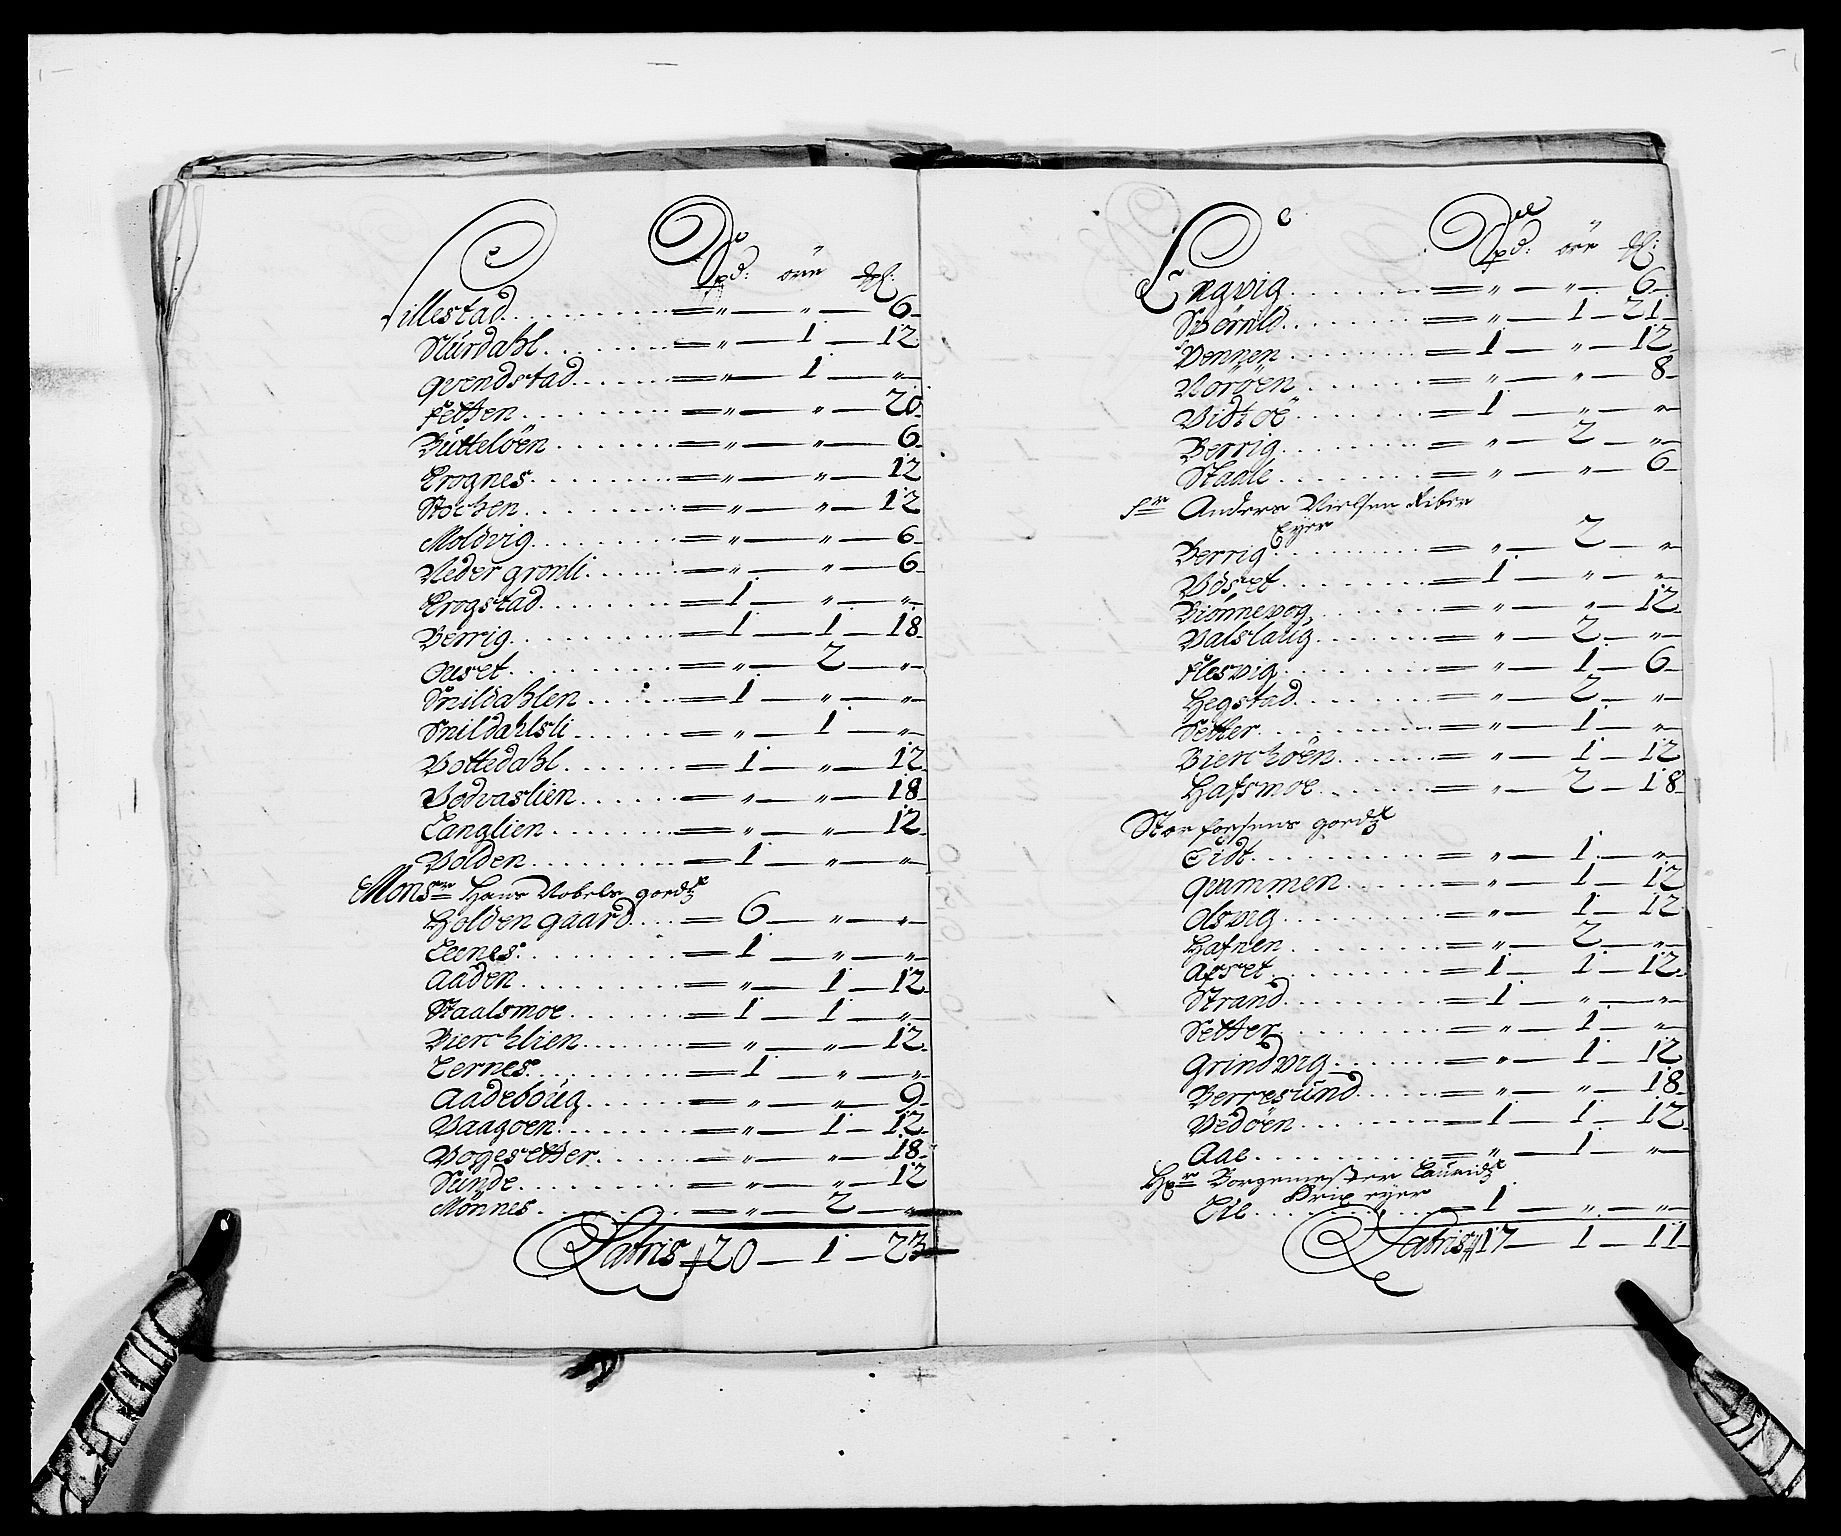 Spd: öre ₰:
Lillestad . . . . . . = „ — „ — 6
Sturdahl . . . . . . = „ — 1 — 12
Qvendstad . . . . . = „ — 1 — „
Fetten . . . . . . = „ — „ — 20
Buttelöen . . . . . = „ — „ — 6
Krognes . . . . . . = „ — „ — 12
Stochen . . . . . . = „ — „ — 12
Moldvig . . . . . . = „ — „ — 6
Neder gronli . . . . = „ — „ — 6
Krogstad . . . . . . = 1 — „ — „
Berrig . . . . . . = 1 — 1 — 18
Ouset . . . . . . = „ — 2 — „
Snildahlen . . . . . = 1 — „ — „
Snildahlsli . . . . . = „ — 1 — „
Bottedahl . . . . . . = 1 — „ — 12
Bodvaslien . . . . . = „ — „ — 18
Langlien . . . . . . = „ — „ — 12
Volden . . . . . . = 1 — „ — „
Monsr Hans Nobels goedz
Holden gaard . . . . = 6 — „ — „
Leenes . . . . . . = 1 — „ — „
Aaden . . . . . . = „ — 1 — 12
Staalsmoe . . . . . = 1 — 1 — „
Bierchlien . . . . . = „ — „ — 12
Lernes . . . . . . = 1 — „ — „
Aadeboug . . . . . . = „ — „ — 9
Vaagoen . . . . . . = „ — 1 — 12
Vogesetter . . . . . = „ — „ — 18
Sunde . . . . . . = „ — „ — 12
Mönnes . . . . . . = „ — 2 — „
Latris 20 — 1 — 23
Spd: öre ₰:
Engvig . . . . . . = „ — „ — 6
Svörnld . . . . . . = „ — 1 — 21
Vennen . . . . . . = 1 — „ — 12
Noröen . . . . . . = „ — „ — 8
Vidtöe . . . . . . = 1 — „ — „
Berrig . . . . . . = „ — 2 — „
Staale . . . . . . = „ — „ — 6
Sr Anders Nielsen Riber
Eyer
Berrig . . . . . . = „ — 2 — „
Vöset . . . . . . = 1 — „ — „
Biönnevog . . . . . = „ — „ — 12
Valslaug . . . . . . = „ — 2 — „
Flesvig . . . . . . = „ — 1 — 6
Hegstad . . . . . . = „ — 2 — „
Setter . . . . . . = „ — 1 — „
Bierchöen . . . . . = „ — 1 — 12
Hafsmoe . . . . . . = „ — 2 — 18
Storforsens goedz
Eidt . . . . . . = „ — 1 — „
Qvammen . . . . . . = „ — 1 — 12
Olsvig . . . . . . = „ — 1 — 12
Hafnen . . . . . . = „ — 2 — „
Afset . . . . . . = 1 — 1 — 12
Strand . . . . . . = 1 — „ — „
Setter . . . . . . = „ — 1 — „
Grindvig . . . . . . = „ — 1 — 12
Berresund . . . . . = „ — „ — 18
Vedöen . . . . . . = 1 — 1 — 12
Aae . . . . . . = „ — 1 — „
Hr Borgemester Lauridz
Brix eyer
Eie . . . . . . = 1 — „ — „
Latris 17 — 1 — 11